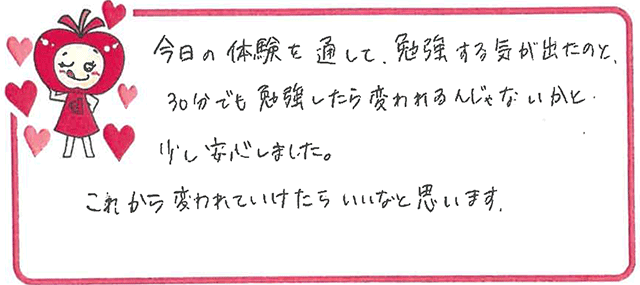 今日の体験を通して、勉強する気が出たのと、
30分でも勉強したら変われるんじゃないかと
少し安心しました。
これから変われていけたらいいなと思います。